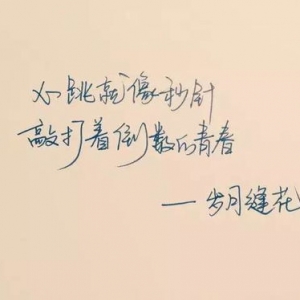 心跳就像秒针
敲打着倒数的青春
—岁月缝花